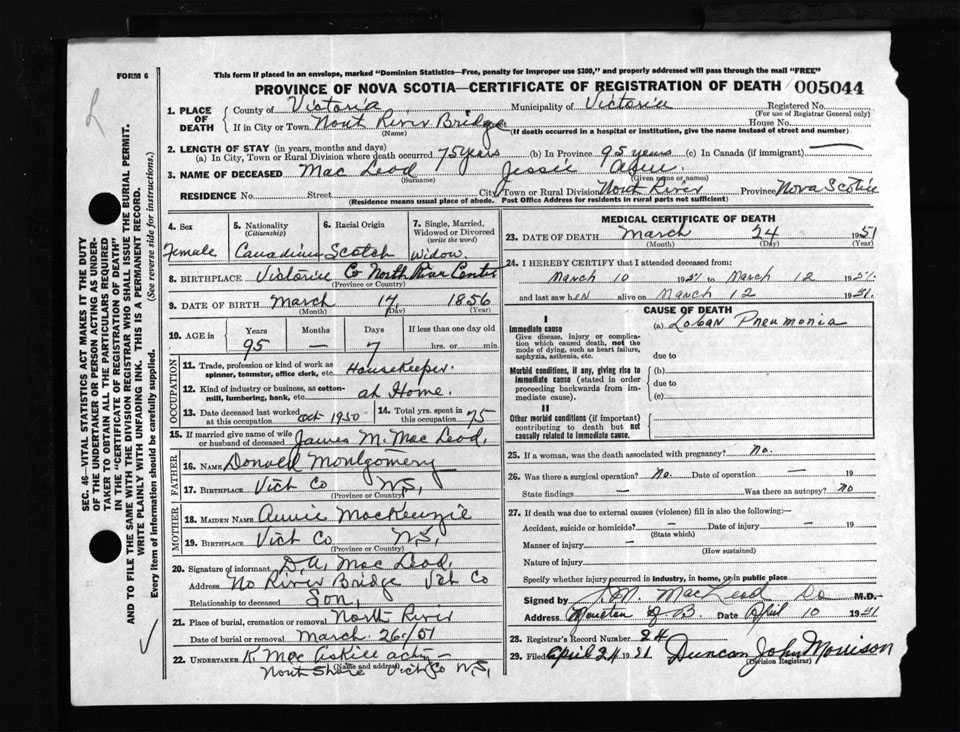 FORM 6
This form if placed in an envelope, marked "Dominion Statistics—Free, penalty for improper use $300," and properly addressed will pass through the mail "FREE"
PROVINCE OF NOVA SCOTIA—CERTIFICATE OF REGISTRATION OF DEATH 005044
1. PLACE OF DEATH
County of Victoria Municipality of Victoria Registered No.
(For use of Registrar General only)
If in City or Town North River Bridge House No.
(Name) (If death occurred in a hospital or institution, give the name instead of street and number)
2. LENGTH OF STAY (in years, months and days)
(a) In City, Town or Rural Division where death occurred 75 years (b) In Province 95 years (c) In Canada (if immigrant) —
3. NAME OF DECEASED Mac Leod Jessie
(Surname) (Given name or names)
RESIDENCE No. Street City, Town or Rural Division North River Province Nova Scotia
(Residence means usual place of abede. Post Office Address for residents in rural parts not sufficient)
4. Sex
Female
5. Nationality
(Citizenship)
Canadian
6. Racial Origin
Scotch
7. Single, Married, Widowed or Divorced
(write the word)
Widow
8. BIRTHPLACE Victoria Co North River Centre
(Province or Country)
9. DATE OF BIRTH March 17, 1856
(Month) (Day) (Year)
10. AGE in
Years Months Days If less than one day old
95 — 7 hrs. or min.
OCCUPATION
11. Trade, profession or kind of work as spinner, teamster, office clerk, etc. Housekeeper.
12. Kind of industry or business, as cotton-mill, lumbering, bank, etc. at Home.
13. Date deceased last worked at this occupation Oct 1950
14. Total yrs. spent in this occupation 75
15. If married give name of wife or husband of deceased James M. Mac Leod,
FATHER
16. NAME Donald Montgomery
17. BIRTHPLACE Vict Co N.S,
(Province or Country)
MOTHER
18. MAIDEN NAME Annie MacKenzie
19. BIRTHPLACE Vict Co N.S,
(Province or Country)
20. Signature of informant D.A. Mac Leod,
Address No River Bridge Vict Co
Relationship to deceased Son,
21. Place of burial, cremation or removal North River
Date of burial or removal March. 26/51
22. UNDERTAKER K Mac Askill acting —
(Name and address)
North Shore Vict Co N.S,
MEDICAL CERTIFICATE OF DEATH
23. DATE OF DEATH March 24 1951
(Month) (Day) (Year)
24. I HEREBY CERTIFY that I attended deceased from:
March 10 1951 to March 12 1951.
and last saw her alive on March 12 1951.
CAUSE OF DEATH
I
Immediate cause
Give disease, injury or complication which caused death, not the mode of dying, such as heart failure, asphyxia, asthenia, etc.
(a) Lobar Pneumonia
due to
Morbid conditions, if any, giving rise to immediate cause (stated in order proceeding backwards from immediate cause).
(b)
due to
(c)
II
Other morbid conditions (if important) contributing to death but not causally related to immediate cause.
25. If a woman, was the death associated with pregnancy? No.
26. Was there a surgical operation? No. Date of operation — 19
State findings — Was there an autopsy? No
27. If death was due to external causes (violence) fill in also the following:—
Accident, suicide or homicide? — Date of injury — 19
(State which)
Manner of injury —
(How sustained)
Nature of injury
Specify whether injury occurred in industry, in home, or in public place
Signed by MacLeod M.D.
Address Date April 10 1951
28. Registrar's Record Number 24
29. Filed April 24 1951 Duncan John Morrison
(Division Registrar)
SEC. 46—VITAL STATISTICS ACT MAKES IT THE DUTY
OF THE UNDERTAKER OR PERSON ACTING AS UNDER-
TAKER TO OBTAIN ALL THE PARTICULARS REQUIRED
IN THE "CERTIFICATE OF REGISTRATION OF DEATH"
AND TO FILE THE SAME WITH THE DIVISION REGISTRAR WHO SHALL ISSUE THE BURIAL PERMIT.
WRITE PLAINLY WITH UNFADING INK. THIS IS A PERMANENT RECORD.
Every item of information should be carefully supplied. (See reverse side for instructions.)